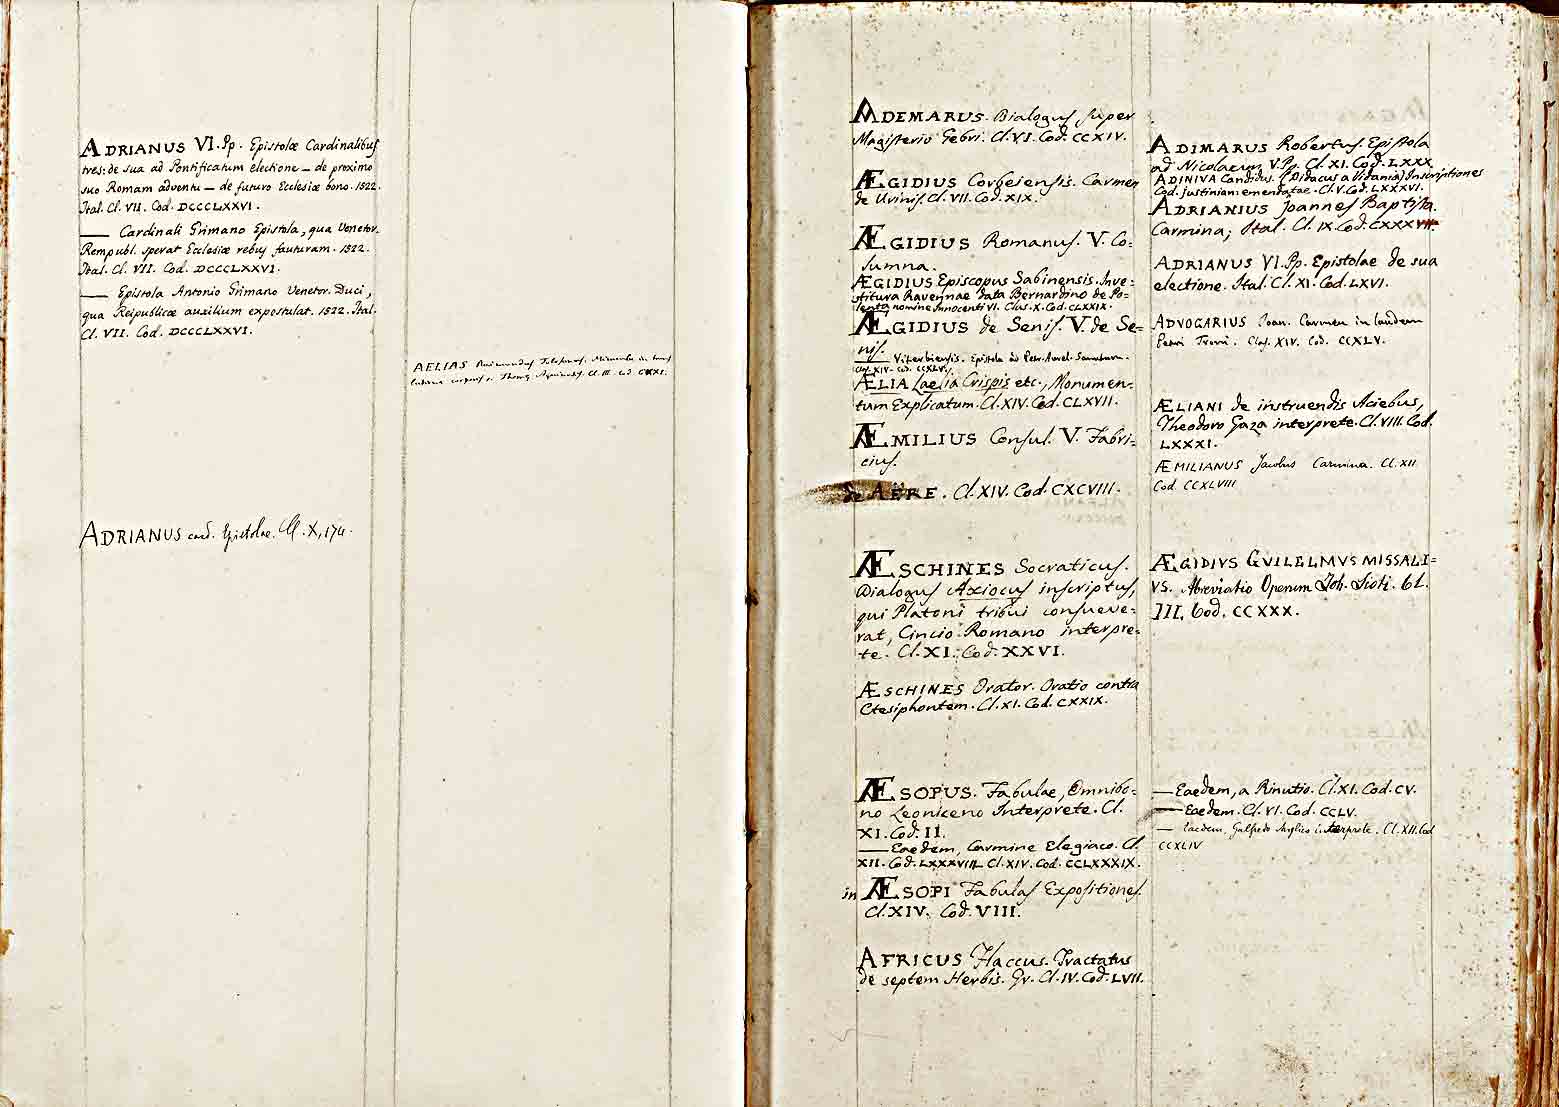 ADRIANUS VI. Pp. Epistolæ Cardinalibus
tres: de sua ad Pontificatum electione — de proximo
suo Romam adventu — de futuro Ecclesiæ bono. 1522.
Ital. Cl. VII. Cod. DCCCLXXVI.
— Cardinali Grimano Epistola, qua Venetor.
Rempubl. sperat Ecclesiæ rebus fauturam. 1522.
Ital. Cl. VII. Cod. DCCCLXXVI.
— Epistola Antonio Grimano Venetor. Duci,
qua Reipublicæ auxilium expostulat. 1522. Ital.
Cl. VII. Cod. DCCCLXXVI.
ADRIANUS card. Epistolae. Cl. X, 174.
AELIAS Raimundus
corpus s. Thomæ Aquinatis. Cl. III. Cod. CXXI.
ADEMARUS. Dialogus super
Magisterio Gebri. Cl. VI. Cod. CCXIV.
ÆGIDIUS Corbeiensis. Carmen
de Urinis. Cl. VII. Cod. XIX.
ÆGIDIUS Romanus. V. Co=
lumna.
ÆGIDIUS Episcopus Sabinensis. Inve=
stitura Ravennae data Bernardino de Po=
lenta nomine Innocenti VI. Clas. X. Cod. CLXXIX.
ÆGIDIUS de Senis. V. de Se=
nis.
— Viterbiensis. Epistola ad Petr. Aurel. Sanutum.
Clas. XIV. Cod. CCXLV.
ÆLIA Laelia Crispis etc., Monumen=
tum Explicatum. Cl. XIV. Cod. CLXVII.
ÆMILIUS Consul. V. Fabri=
cius.
de AËRE. Cl. XIV. Cod. CXCVIII.
ÆSCHINES Socraticus.
Dialogus Axiocus inscriptus,
qui Platoni tribui consueve=
rat, Cincio Romano interpre=
te. Cl. XI. Cod. XXVI.
ÆSCHINES Orator. Oratio contra
Ctesiphontem. Cl. XI. Cod. CXXIX.
ÆSOPUS. Fabulae, Omnibo=
no Leoniceno Interprete. Cl.
XI. Cod. II.
— Eaedem, Carmine Elegiaco. Cl.
XII. Cod. LXXXVIII. Cl. XIV. Cod. CCLXXXIX.
in ÆSOPI Fabulas Expositiones.
Cl. XIV. Cod. VIII.
AFRICUS Flaccus. Tractatus
de septem Herbis. Gr. Cl. IV. Cod. LVII.
ADIMARUS Robertus. Epistola
ad Nicolaum V. Pp. Cl. XI. Cod. LXXX
ADINIVA Candidus. (Didacus a Vidania) Inscriptiones
Cod. Justinian: emendatae. Cl. V. Cod. LXXXVI.
ADRIANIUS Joannes Baptista.
Carmina; Ital. Cl. IX. Cod. CXXXVII.
ADRIANUS VI. Pp. Epistolae de sua
electione. Ital. Cl. XI. Cod. LXVI.
ADVOGARIUS Ioan. Carmen in laudem
Petri Troni. Clas. XIV. Cod. CCXLV.
ÆLIANI de instruendis Aciebus,
Theodoro Gaza interprete. Cl. VIII. Cod.
LXXXI.
ÆMILIANUS Jacobus Carmina. Cl. XII
Cod. CCXLVIII
ÆGIDIVS GVILELMVS MISSALI=
VS. Abreviatio Operum Joh. Scoti. Cl.
III. Cod. CCXXX.
— Eaedem, a Rinutio. Cl. XI. Cod. CV.
— Eaedem. Cl. VI. Cod. CCLV.
— Eaedem, Galfredo Anglico interprete. Cl. XII. Cod
CCXLIV